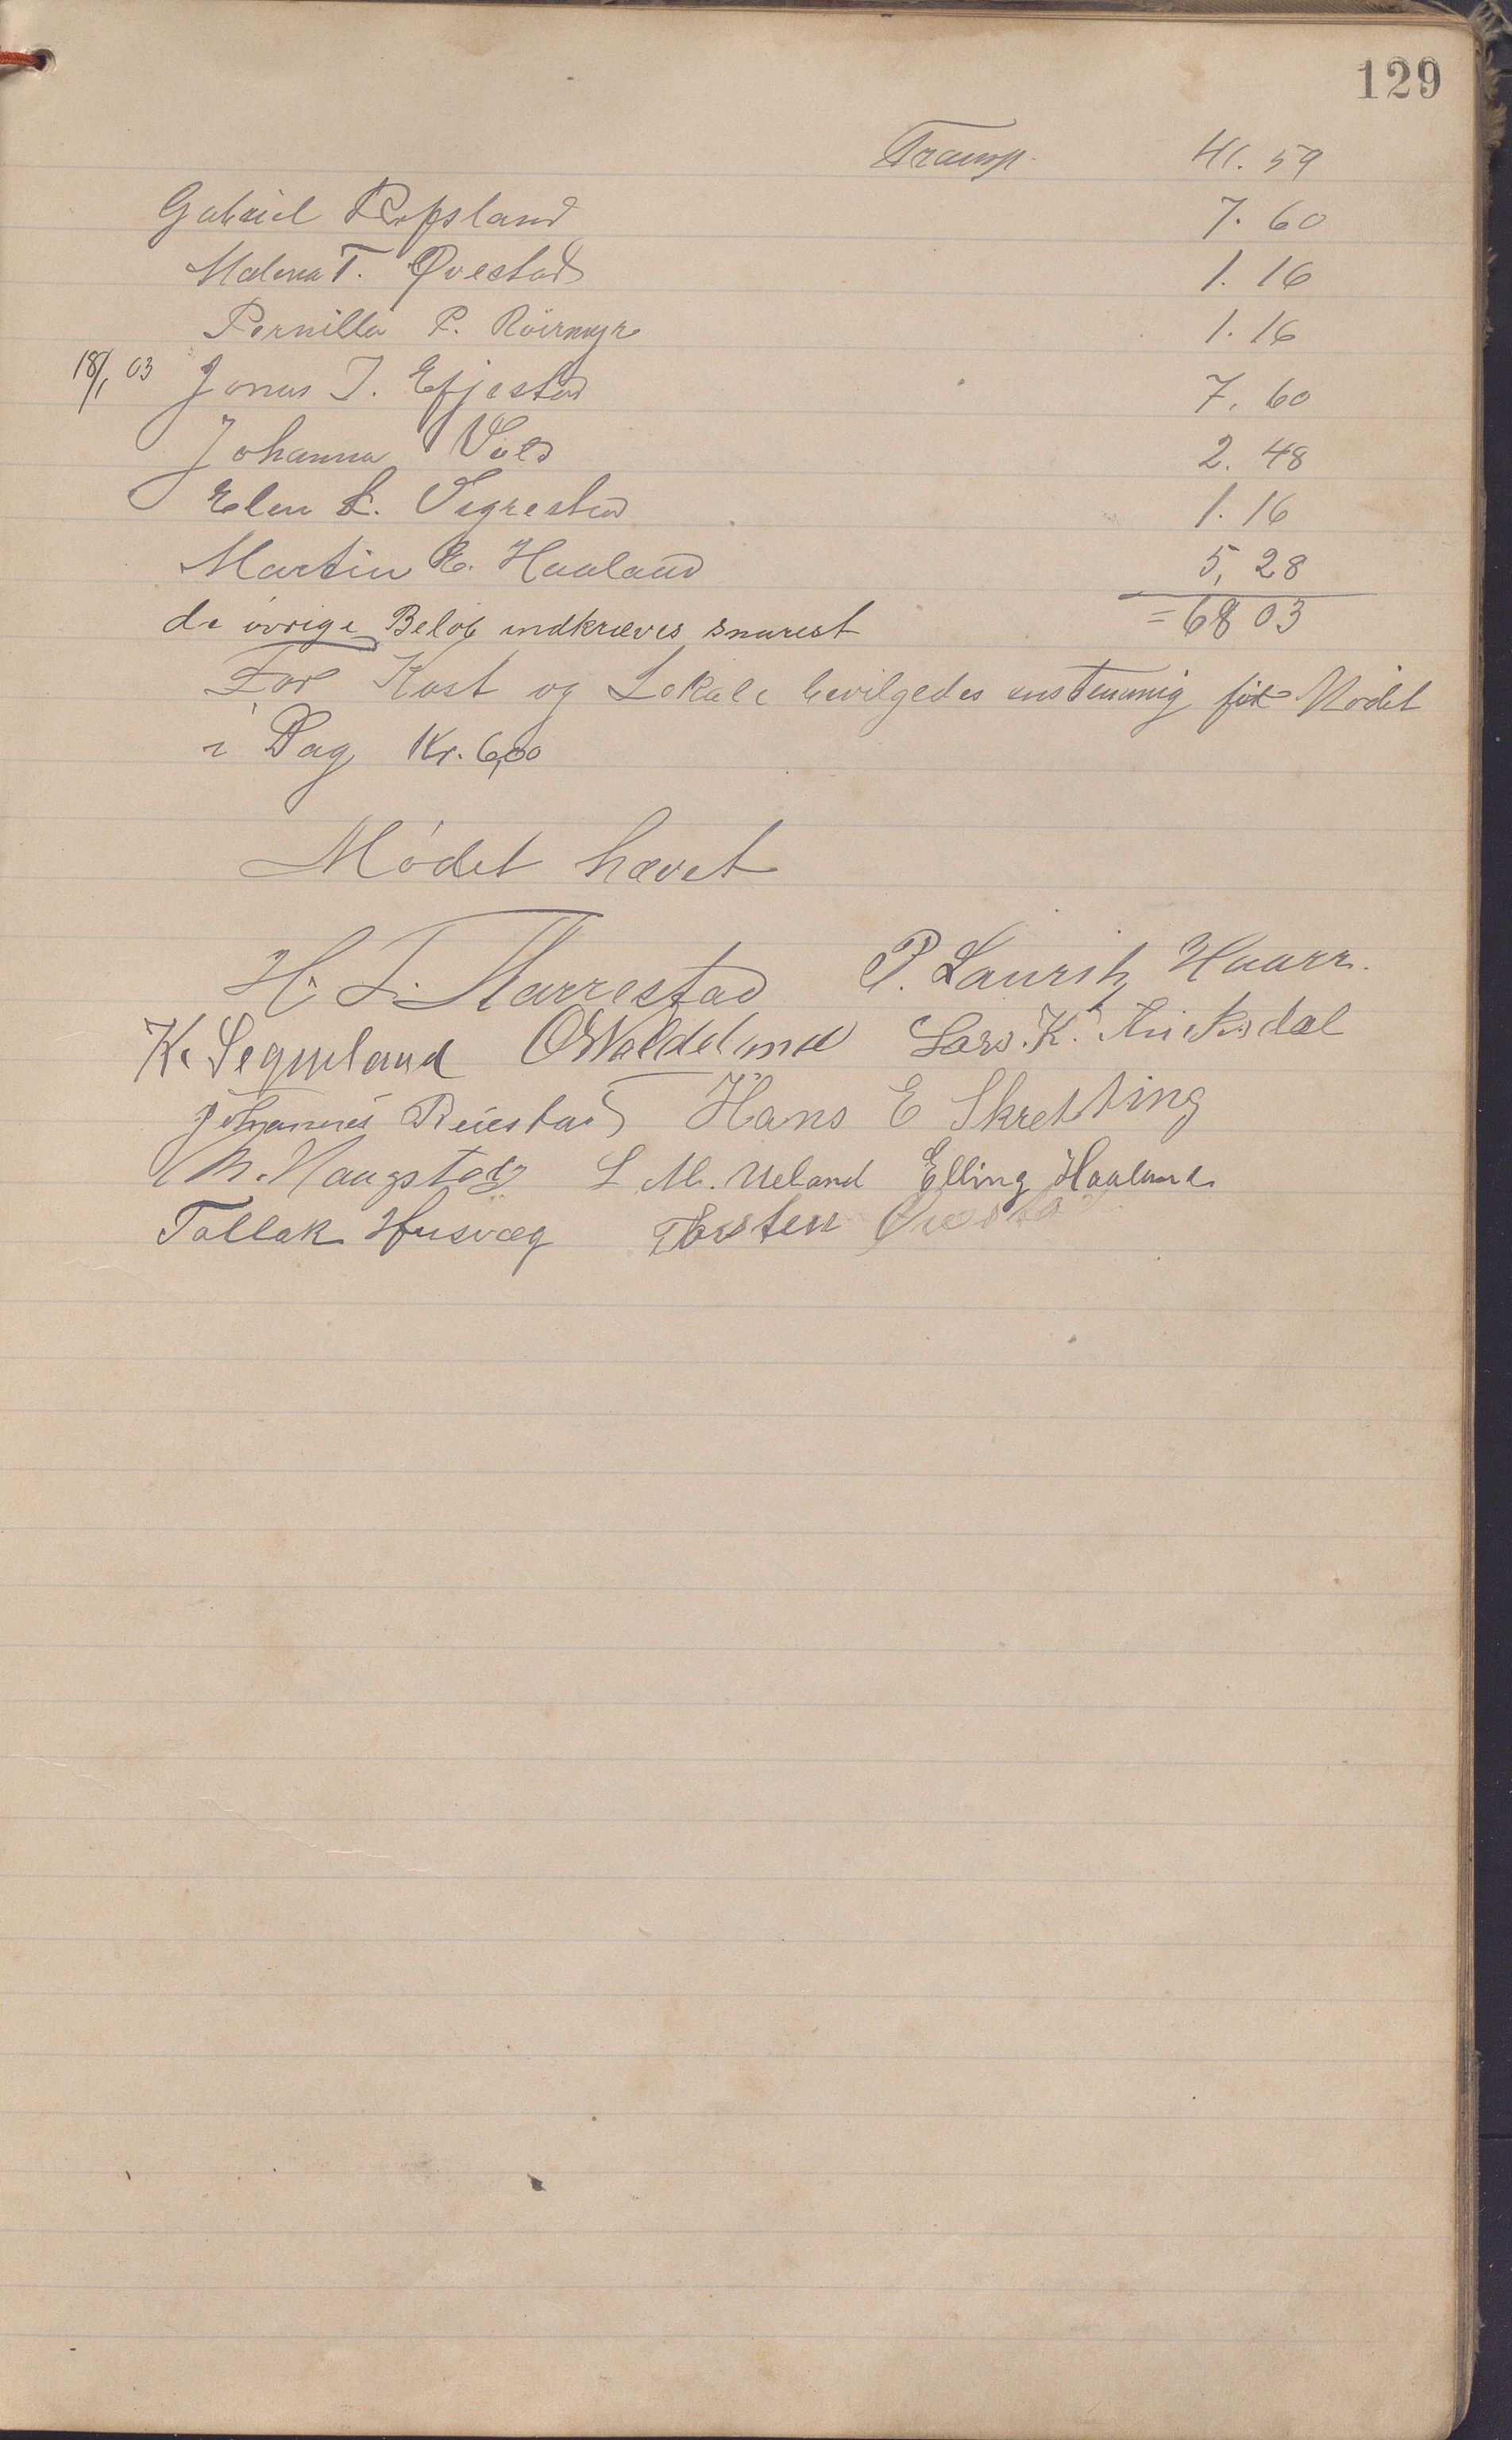 129
Transp. 41.59
Gabriel Refsland 7.60
Malena T. Qvestad 1.16
Pernilla P. Röirmyr 1.16
18/1 03 Jonas J. Efjestad 7,60
Johanna Vold 2.48
Elen L. Segrestad 1.16
Martin E. Haaland 5,28
de øvrige Beløb indkræves snarest = 68 03
For Kost og Lokale bevilgedes enstemmig for Mødet
i Dag Kr. 6,00
Mødet hævet
H. T. Harrestad P. Lauritz Haarr.
K. Seglund O Waldeland Lars. K. Auksdal
Johannes Reiestad Hans E Skretting
M. Haugstad L M. Ueland Elling Haaland
Tallak Husvæg Torsten Qvestad